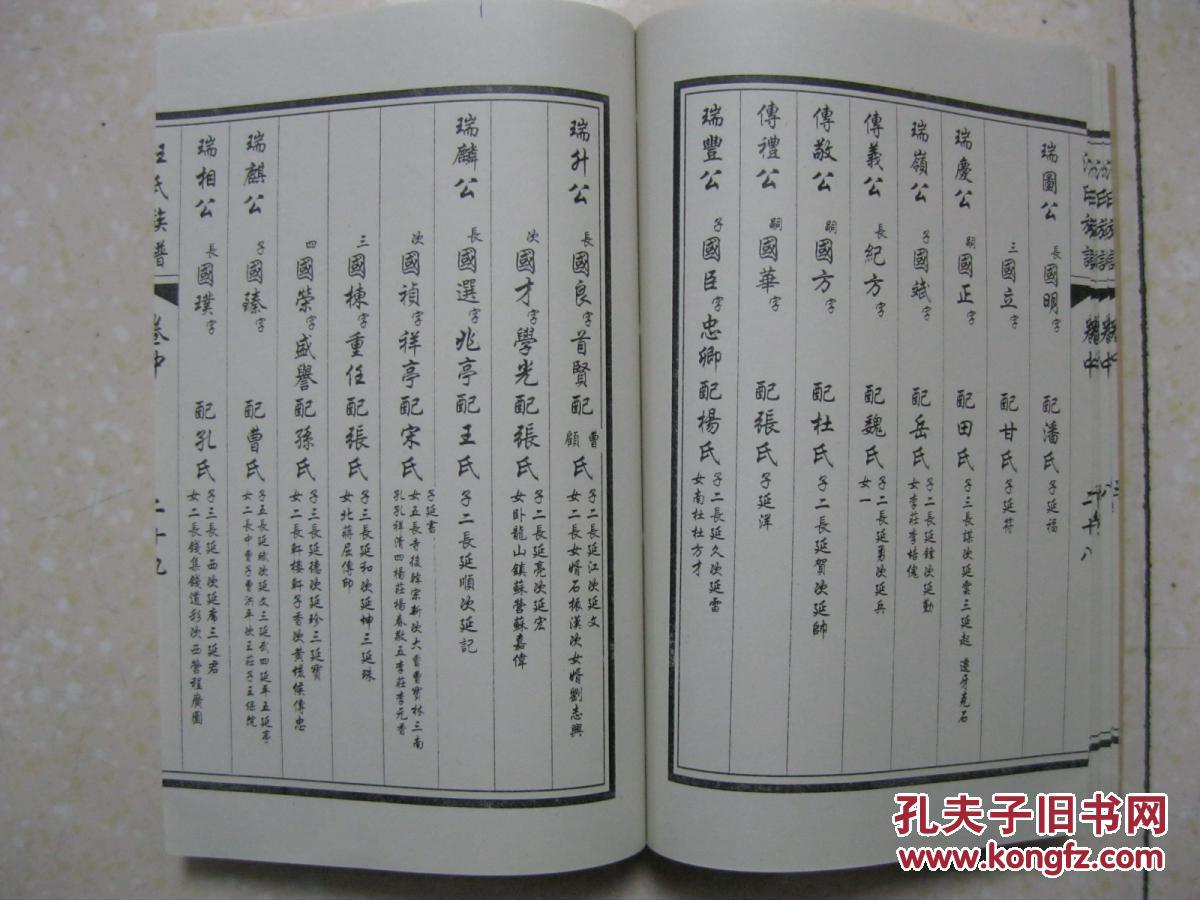 瑞圖公 長國明字 配潘氏 子延福
三國立字 配甘氏 子延符
瑞慶公 嗣國正字 配田氏 子三長謀次延雲三延起 遷牙克石
瑞嶺公 子國斌字 配岳氏 子二長延鐘次延勤
女李莊李培傀
傳義公 長紀方字 配魏氏 子二長延勇次延兵
女一
傳敬公 嗣國方字 配杜氏 子二長延賀次延帥
傳禮公 嗣國華字 配張氏 子延洋
瑞豐公 子國臣字忠卿配楊氏 子二長延久次延雷
女南杜杜方才
瑞升公 長國良字首賢配曹顧氏 子二長延江次延文
女二長女婿石振漢次女婿劉志興
次國才字學光配張氏 子二長延亮次延宏
女卧龍山鎮蘇營蘇嘉偉
瑞麟公 長國選字兆亭配王氏 子二長延順次延記
次國禎字祥亭配宋氏 子延書
女五長寺後韓宗新次大曹曹寶林三南
孔孔祥清四楊莊楊春敬五李莊李元香
三國棟字重任配張氏 子三長延和次延坤三延珠
女北蔣屈傳帥
四國榮字盛譽配孫氏 子三長延德次延珍三延寶
女二長軒樓軒子香次黄垓侯傳忠
瑞麒公 子國臻字 配曹氏 子五長延斌次延文三延武四延平五延亭
女二長中曹子曹洪平次王莊子王保院
瑞相公 長國璞字 配孔氏 子三長延西次延席三延君
女二長錢集錢道彩次西營程廣圖
王氏族譜 卷中 二十九
孔夫子旧书网
www.kongfz.com